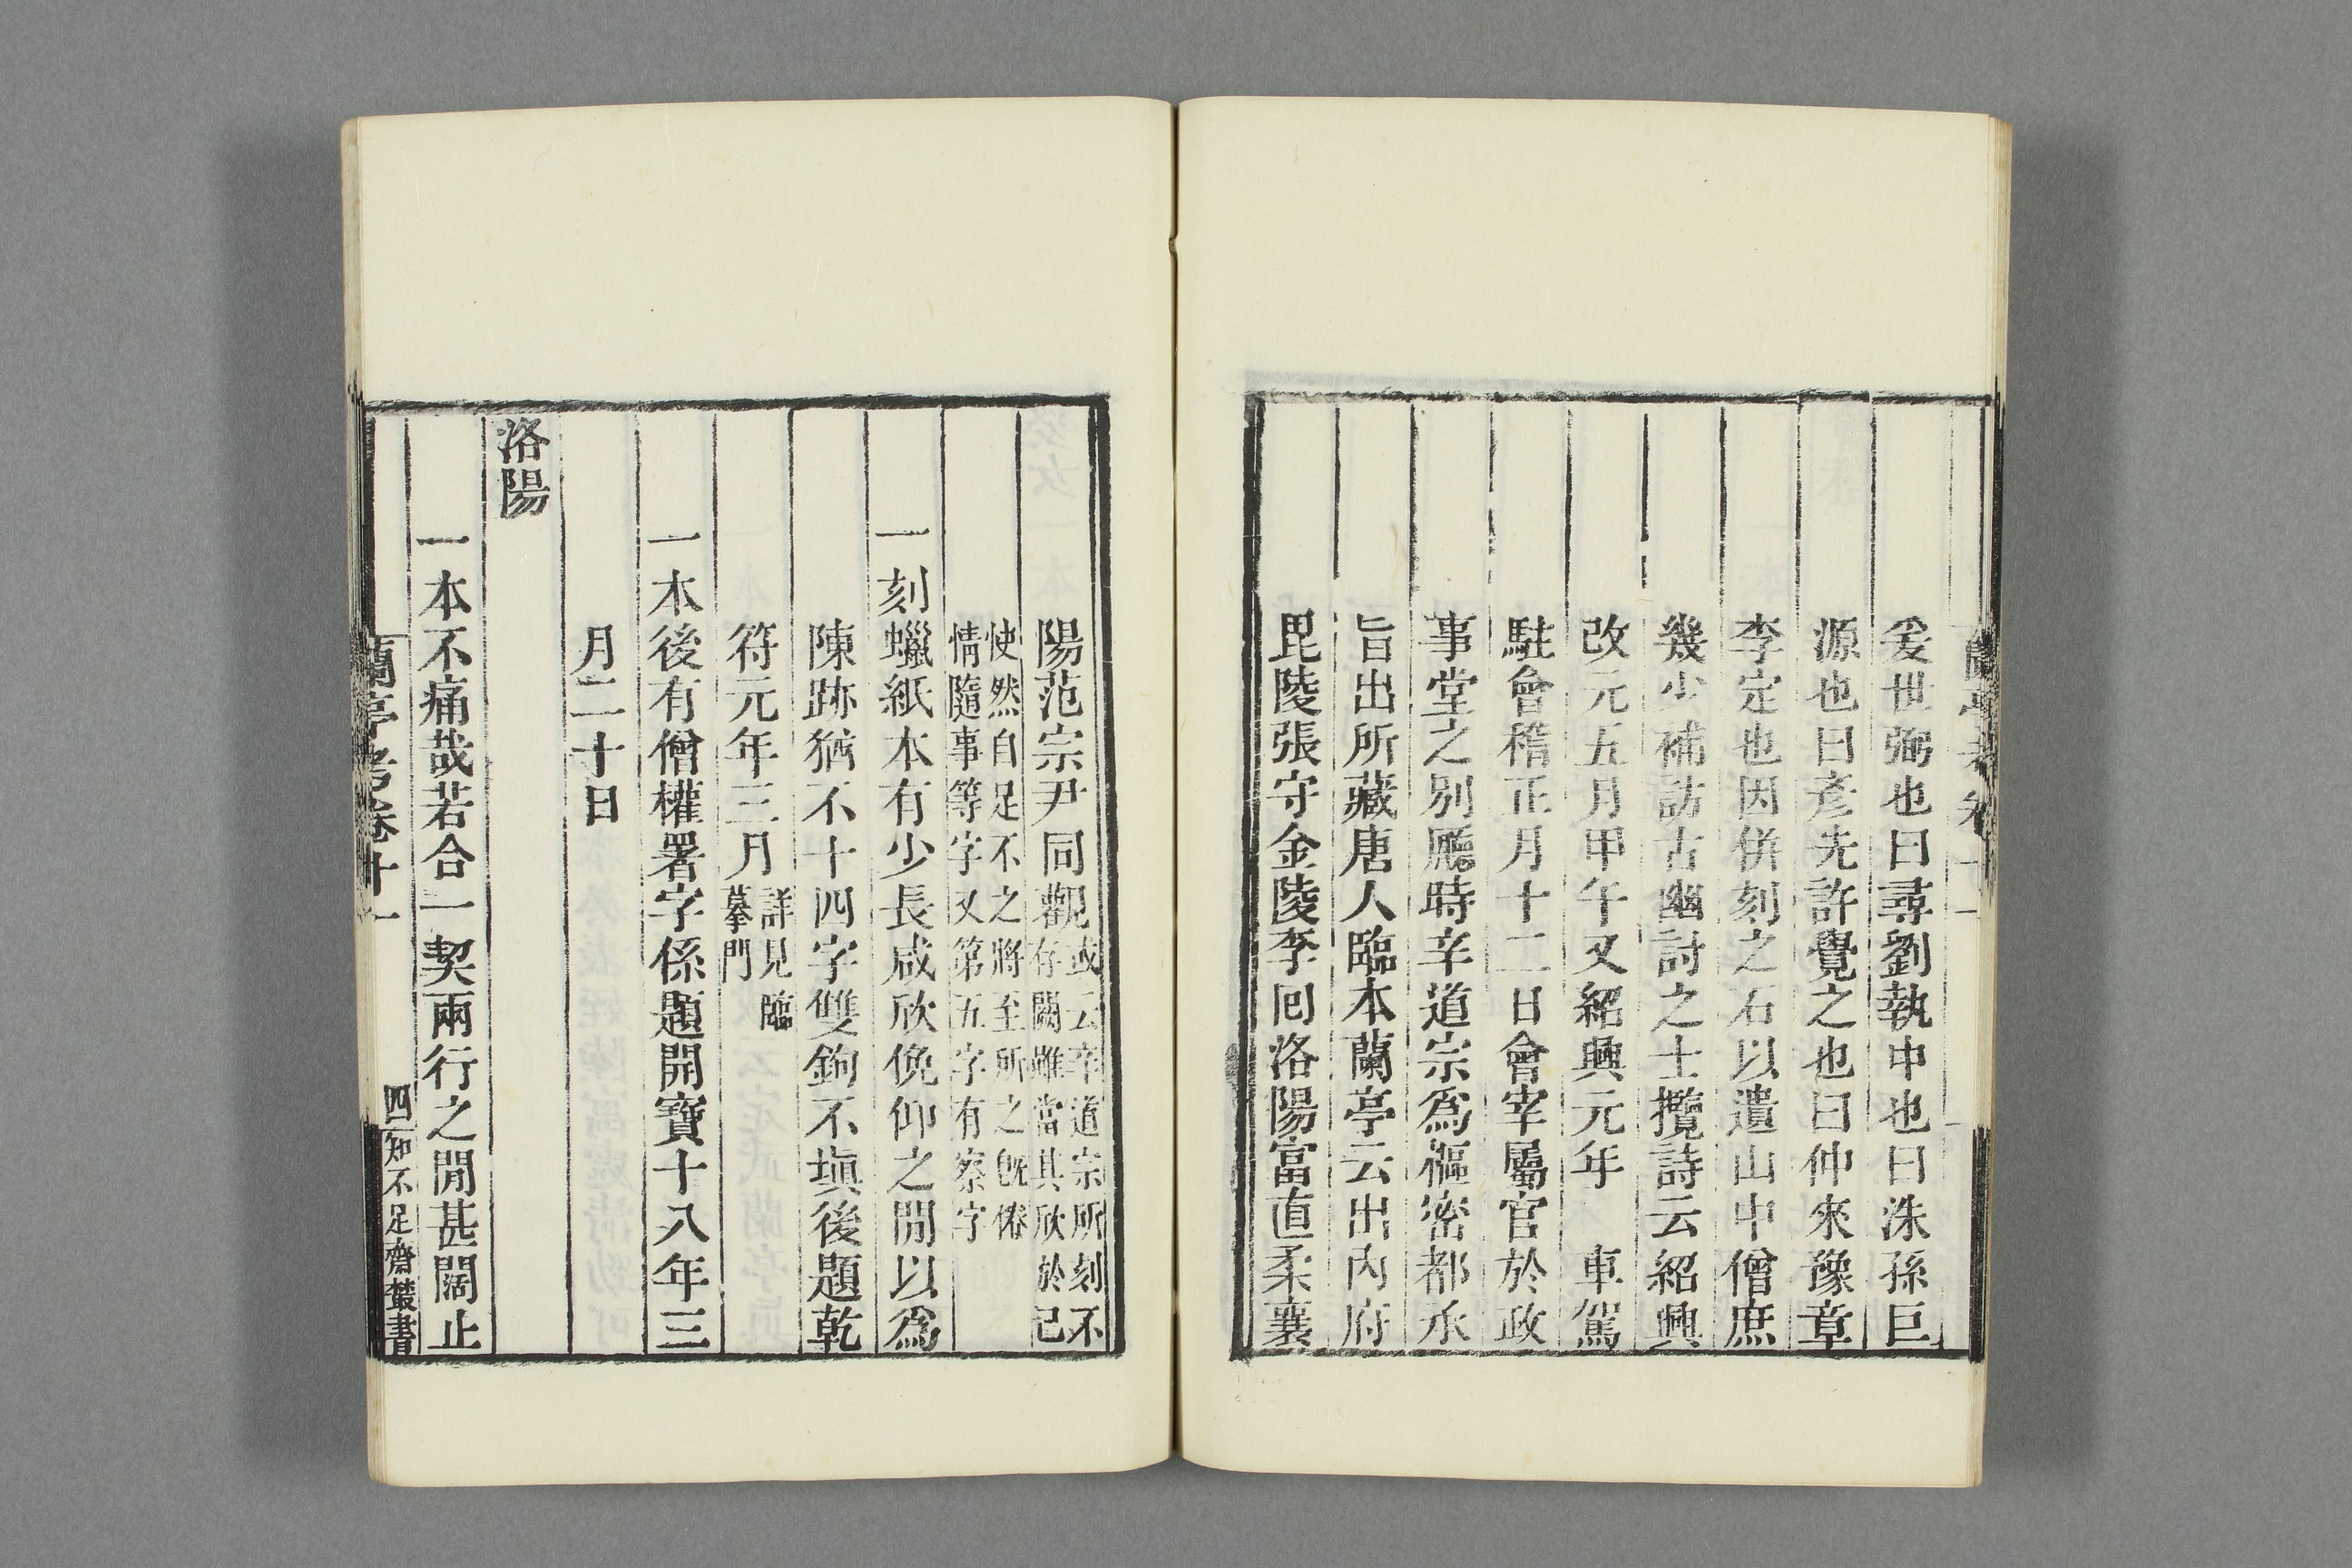 蘭亭考卷十一
爰世弼也曰尋劉執中也曰洙孫巨
源也曰彥先許覺之也曰仲來豫章
李定也因併刻之石以遺山中僧庶
幾少補訪古幽討之士攬詩云紹興
改元五月甲午又紹興元年　車駕
駐會稽正月十二日會宰屬官於政
事堂之別廳時辛道宗爲樞密都承
旨出所藏唐人臨本蘭亭云出內府
毘陵張守金陵李囘洛陽富直柔襄
陽范宗尹同觀或云辛道宗所刻不
存闕雖當其欣於己
怏然自足不之將至所之旣倦
情隨事等字又第五字有察字
一刻蠟紙本有少長咸欣俛仰之閒以爲
陳跡猶不十四字雙鉤不塡後題乾
符元年三月詳見臨
摹門
一本後有僧權署字係題開寶十八年三
月二十日
洛陽
一本不痛哉若合一契兩行之閒甚闊止
蘭亭考卷十一
四
知不足齋叢書